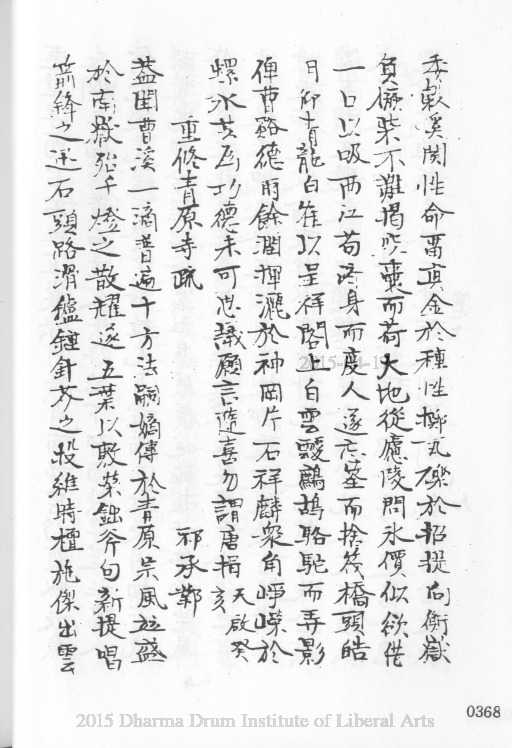 委㲉溪関性命畱真金於種性擲瓦礫於招提向衡嶽
負𢊍柴不難揭吹棗而荷大地從廬陵問米價似欲借
一口以吸西江苟潛身而度人遂忘筌而捨筏橋頭皓
月印青龍白雀以呈祥閣上白雲靉鷓鴣駱駝而弄影
俾曹谿德雨餘潤揮灑於神岡片石祥麟衆角崢嶸於
螺水茲為功德未可思議願言隨喜勿謂唐捐 天啟癸亥
重修青原寺疏 邪承鄴
蓋聞曹溪一滴普遍十方法嗣嫡傳於青原宗風並盛
於南嶽殆千燈之散耀遂五葉以敷榮鈯斧句新提唱
箭鋒之迅石頭路滑鑪錘針芥之投維時檀施傑出雲
0368
2015-04-1
2015 Dharma Drum Institute of Liberal Arts